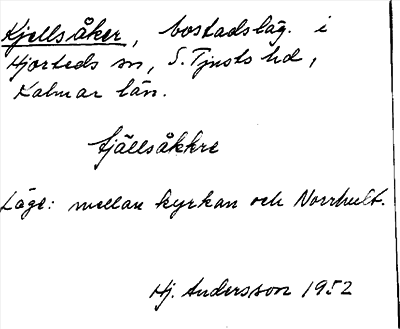 Kjellsåker, bostadsläg. i
Hjorteds sn, S. Tjusts hd,
Kalmar län.
fjällsåkkre
Läge: mellan kyrkan och Norrhult.
Hj. Andersson 1952